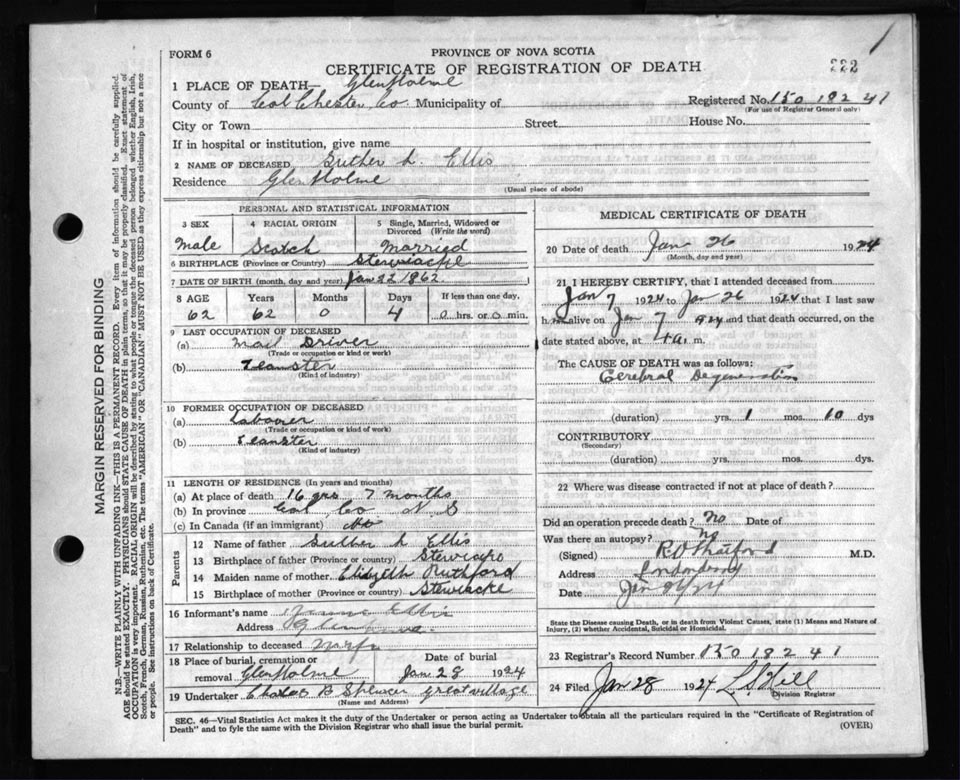 FORM 6
PROVINCE OF NOVA SCOTIA
CERTIFICATE OF REGISTRATION OF DEATH
222
1 PLACE OF DEATH— Glenholme
County of Colchester Co Municipality of
Registered No. 150 182 41
(For use of Registrar General only)
City or Town Street House No.
If in hospital or institution, give name
2 NAME OF DECEASED L. Ellis
Residence Glenholme
(Usual place of abode)
PERSONAL AND STATISTICAL INFORMATION
3 SEX
Male
4 RACIAL ORIGIN
Scotch
5 Single, Married, Widowed or Divorced (Write the word)
Married
6 BIRTHPLACE (Province or Country) Stewiacke
7 DATE OF BIRTH (month, day and year) Jan 22 1862
8 AGE Years Months Days If less than one day.
62 62 0 4 0 hrs. or 0 min.
9 LAST OCCUPATION OF DECEASED
(a) Mail Driver
(Trade or occupation or kind or work)
(b) Teamster
(Kind of industry)
10 FORMER OCCUPATION OF DECEASED
(a) Labourer
(Trade or occupation or kind of work)
(b) Teamster
(Kind of industry)
11 LENGTH OF RESIDENCE (In years and months)
(a) At place of death 16 yrs 7 months
(b) In province Col Co N S
(c) In Canada (if an immigrant) No
Parents
12 Name of father Ellis
13 Birthplace of father (Province or country) Stewiacke
14 Maiden name of mother Elizabeth Ruthford
15 Birthplace of mother (Province or country) Stewiacke
16 Informant's name Ellis
Address Glenholme
17 Relationship to deceased Wife
18 Place of burial, cremation or removal Glenholme
Date of burial
Jan 28 1924
19 Undertaker Charles B Spencer Great Village
(Name and Address)
MEDICAL CERTIFICATE OF DEATH
20 Date of death Jan 26 1924
(Month, day and year)
21 I HEREBY CERTIFY, that I attended deceased from
Jan 7 1924 to Jan 26 1924 that I last saw
h alive on Jan 7 1924 and that death occurred, on
date stated above, at 4 a. m.
The CAUSE OF DEATH was as follows:
Cerebral Degeneration
(duration) yrs. 1 mos. 10 dys
CONTRIBUTORY
(Secondary)
(duration) yrs. mos. dys
22 Where was disease contracted if not at place of death?
Did an operation precede death? No Date of
Was there an autopsy? No
(Signed) M.D.
Address Londonderry
Date Jan 24
State the Disease causing Death, or in death from Violent Causes, state (1) Means and Nature of
Injury, (2) whether Accidental, Suicidal or Homicidal.
23 Registrar's Record Number 150 182 41
24 Filed Jan 28 1924 L S Hill
Division Registrar
SEC. 46—Vital Statistics Act makes it the duty of the Undertaker or person acting as Undertaker to obtain all the particulars required in the "Certificate of Registration of
Death" and to fyle the same with the Division Registrar who shall issue the burial permit.
(OVER)
MARGIN RESERVED FOR BINDING
N.B.—WRITE PLAINLY WITH UNFADING INK—THIS IS A PERMANENT RECORD. Every item of information should be carefully supplied.
AGE should be stated EXACTLY. PHYSICIANS should STATE CAUSE OF DEATH in plain terms, so that it may be properly classified. Exact statement of
OCCUPATION is very important. RACIAL ORIGIN will be described by stating to what people or tongue the deceased person belonged whether English, Irish,
Scotch, French, German, Russian, Ruthenian, etc. The terms "AMERICAN" OR "CANADIAN" MUST NOT HE USED as they express citizenship but not a race
or people. See instructions on back of Certificate.